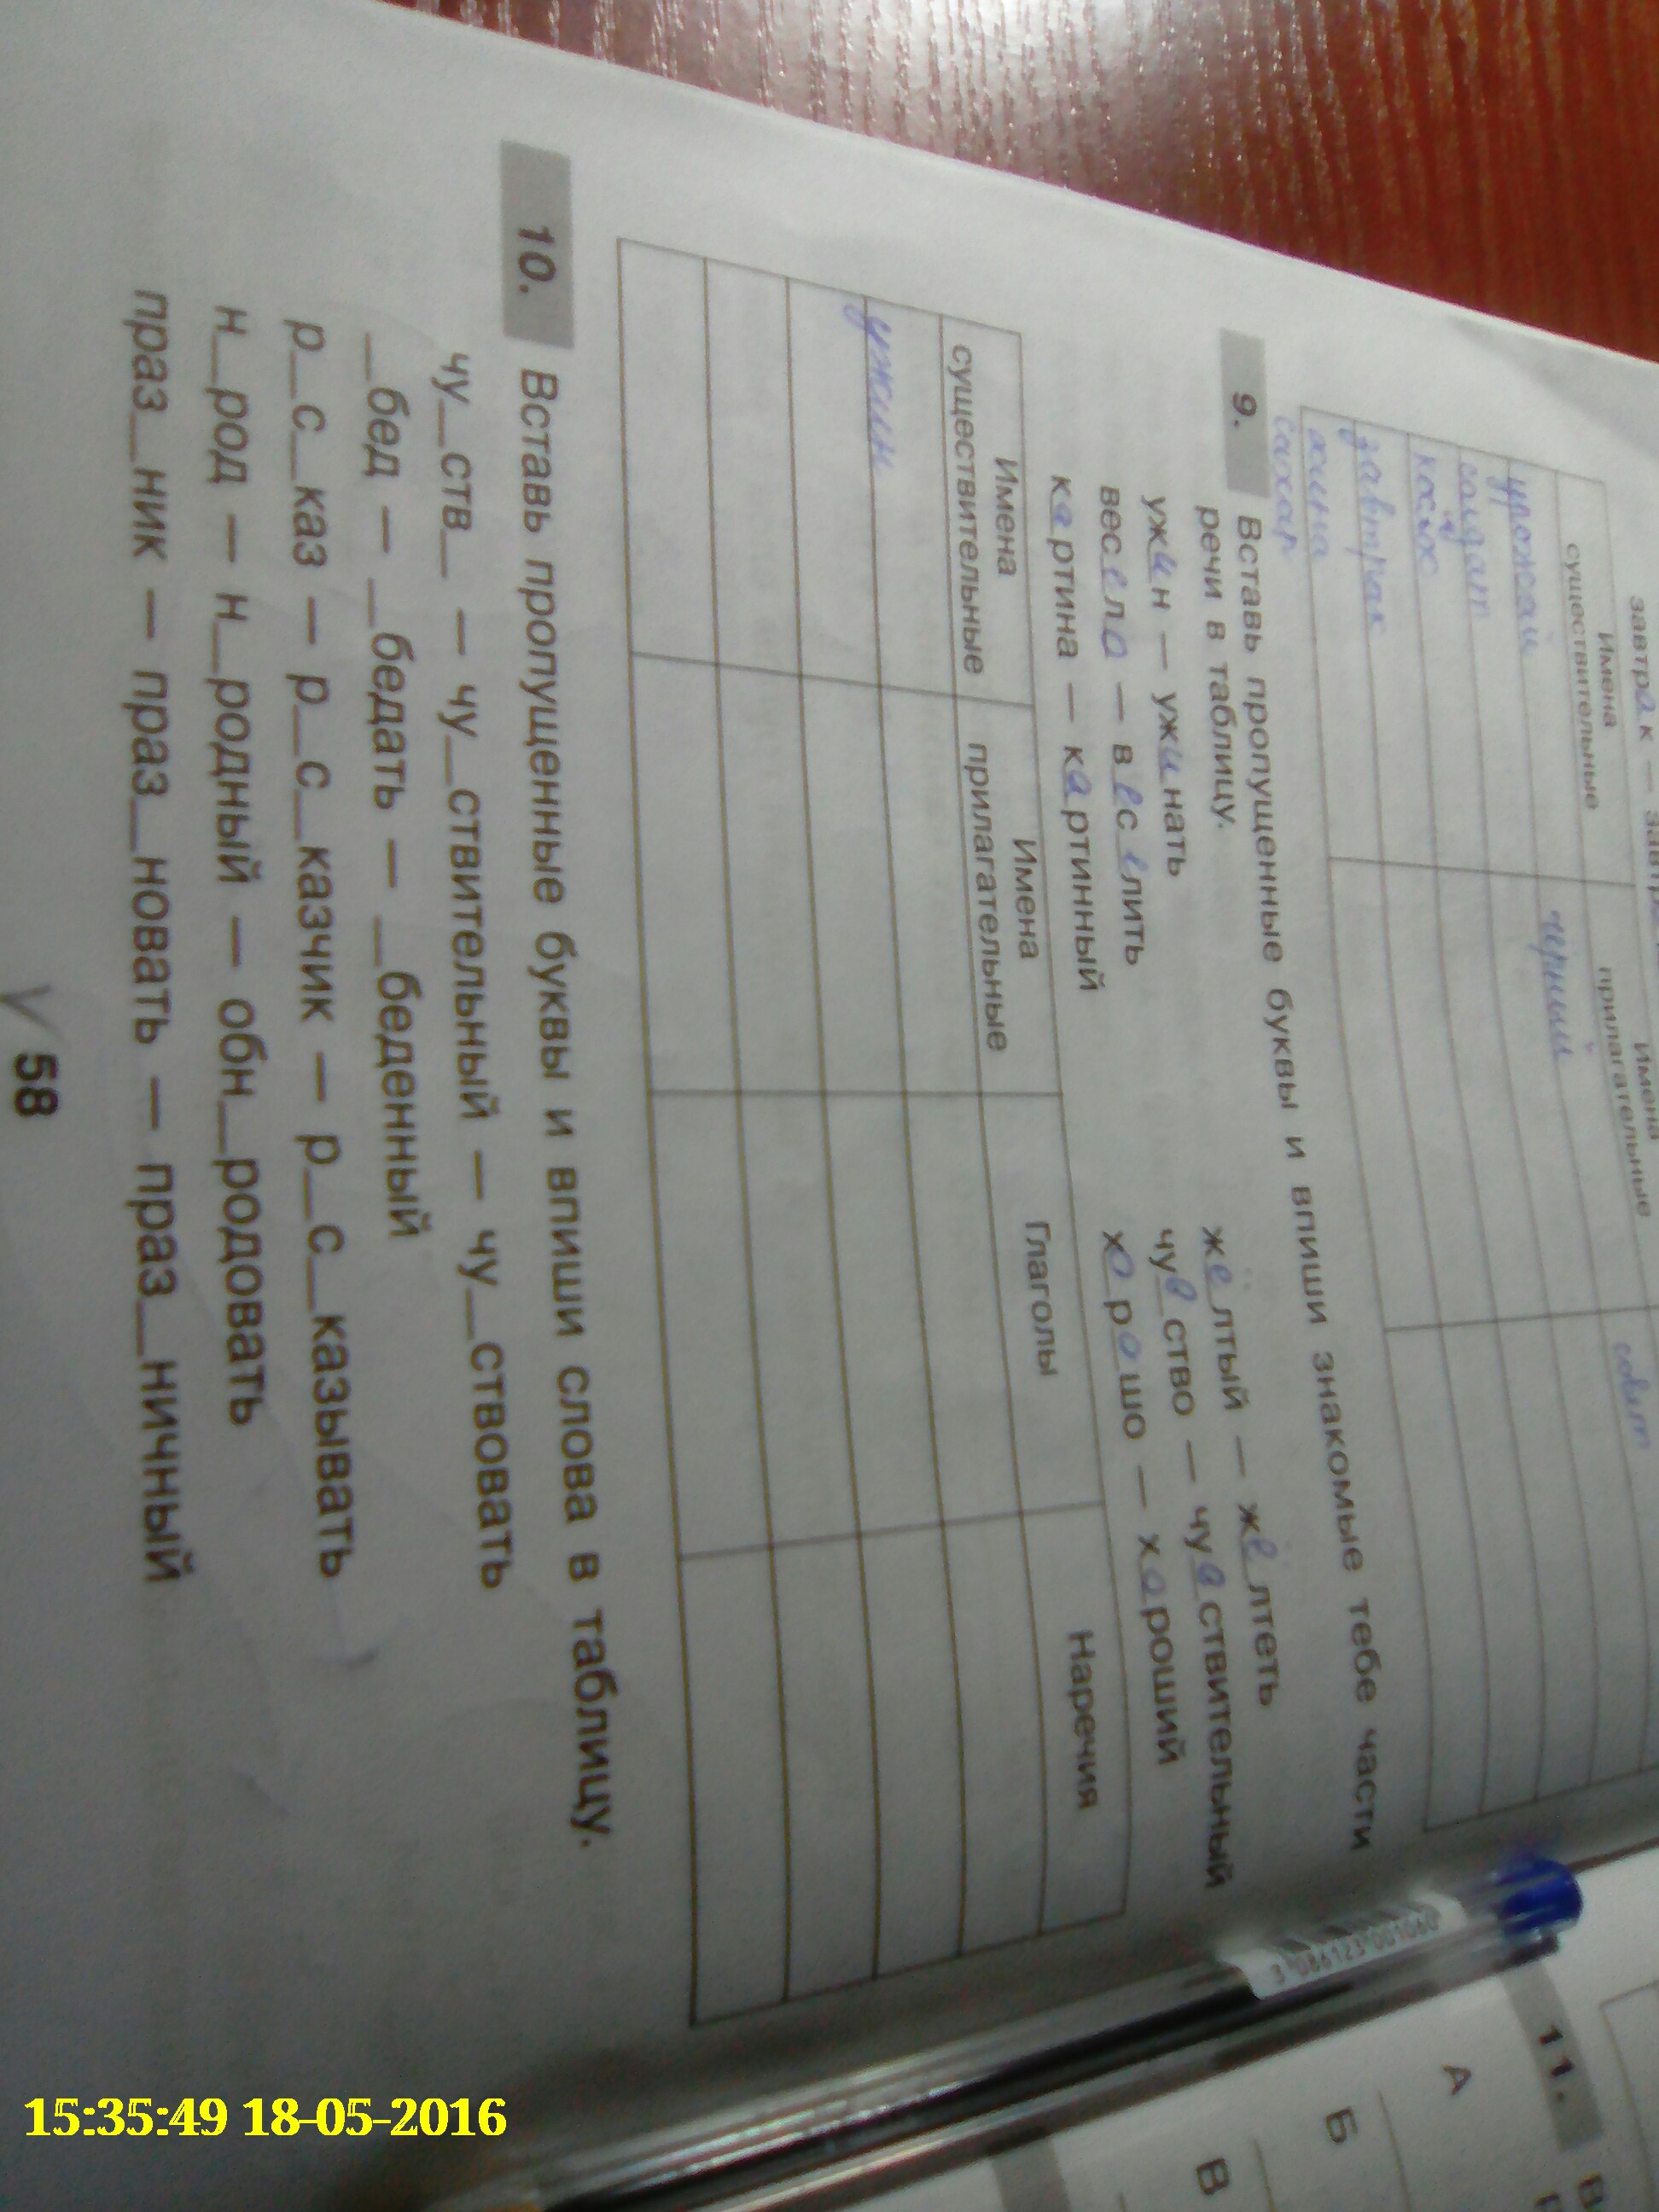 завтрак —
Имена существительные
Имена прилагательные
урожай
чёрный
солдат
завтрак
сахар
9. Вставь пропущенные буквы и впиши знакомые тебе части
речи в таблицу.
ужин — ужинать
весело — веселить
картина — картинный
жёлтый — желтеть
чувство — чувствительный
хорошо — хороший
Имена существительные
Имена прилагательные
Глаголы
Наречия
ужин
10. Вставь пропущенные буквы и впиши слова в таблицу.
чу_ств_ — чу_ствительный — чу_ствовать
_бед — _бедать — _беденный
р_с_каз — р_с_казчик — р_с_казывать
н_род — н_родный — обн_родовать
праз_ник — праз_новать — праз_ничный
58
11.
А
Б
В
3 086123 001060
15:35:49 18-05-2016